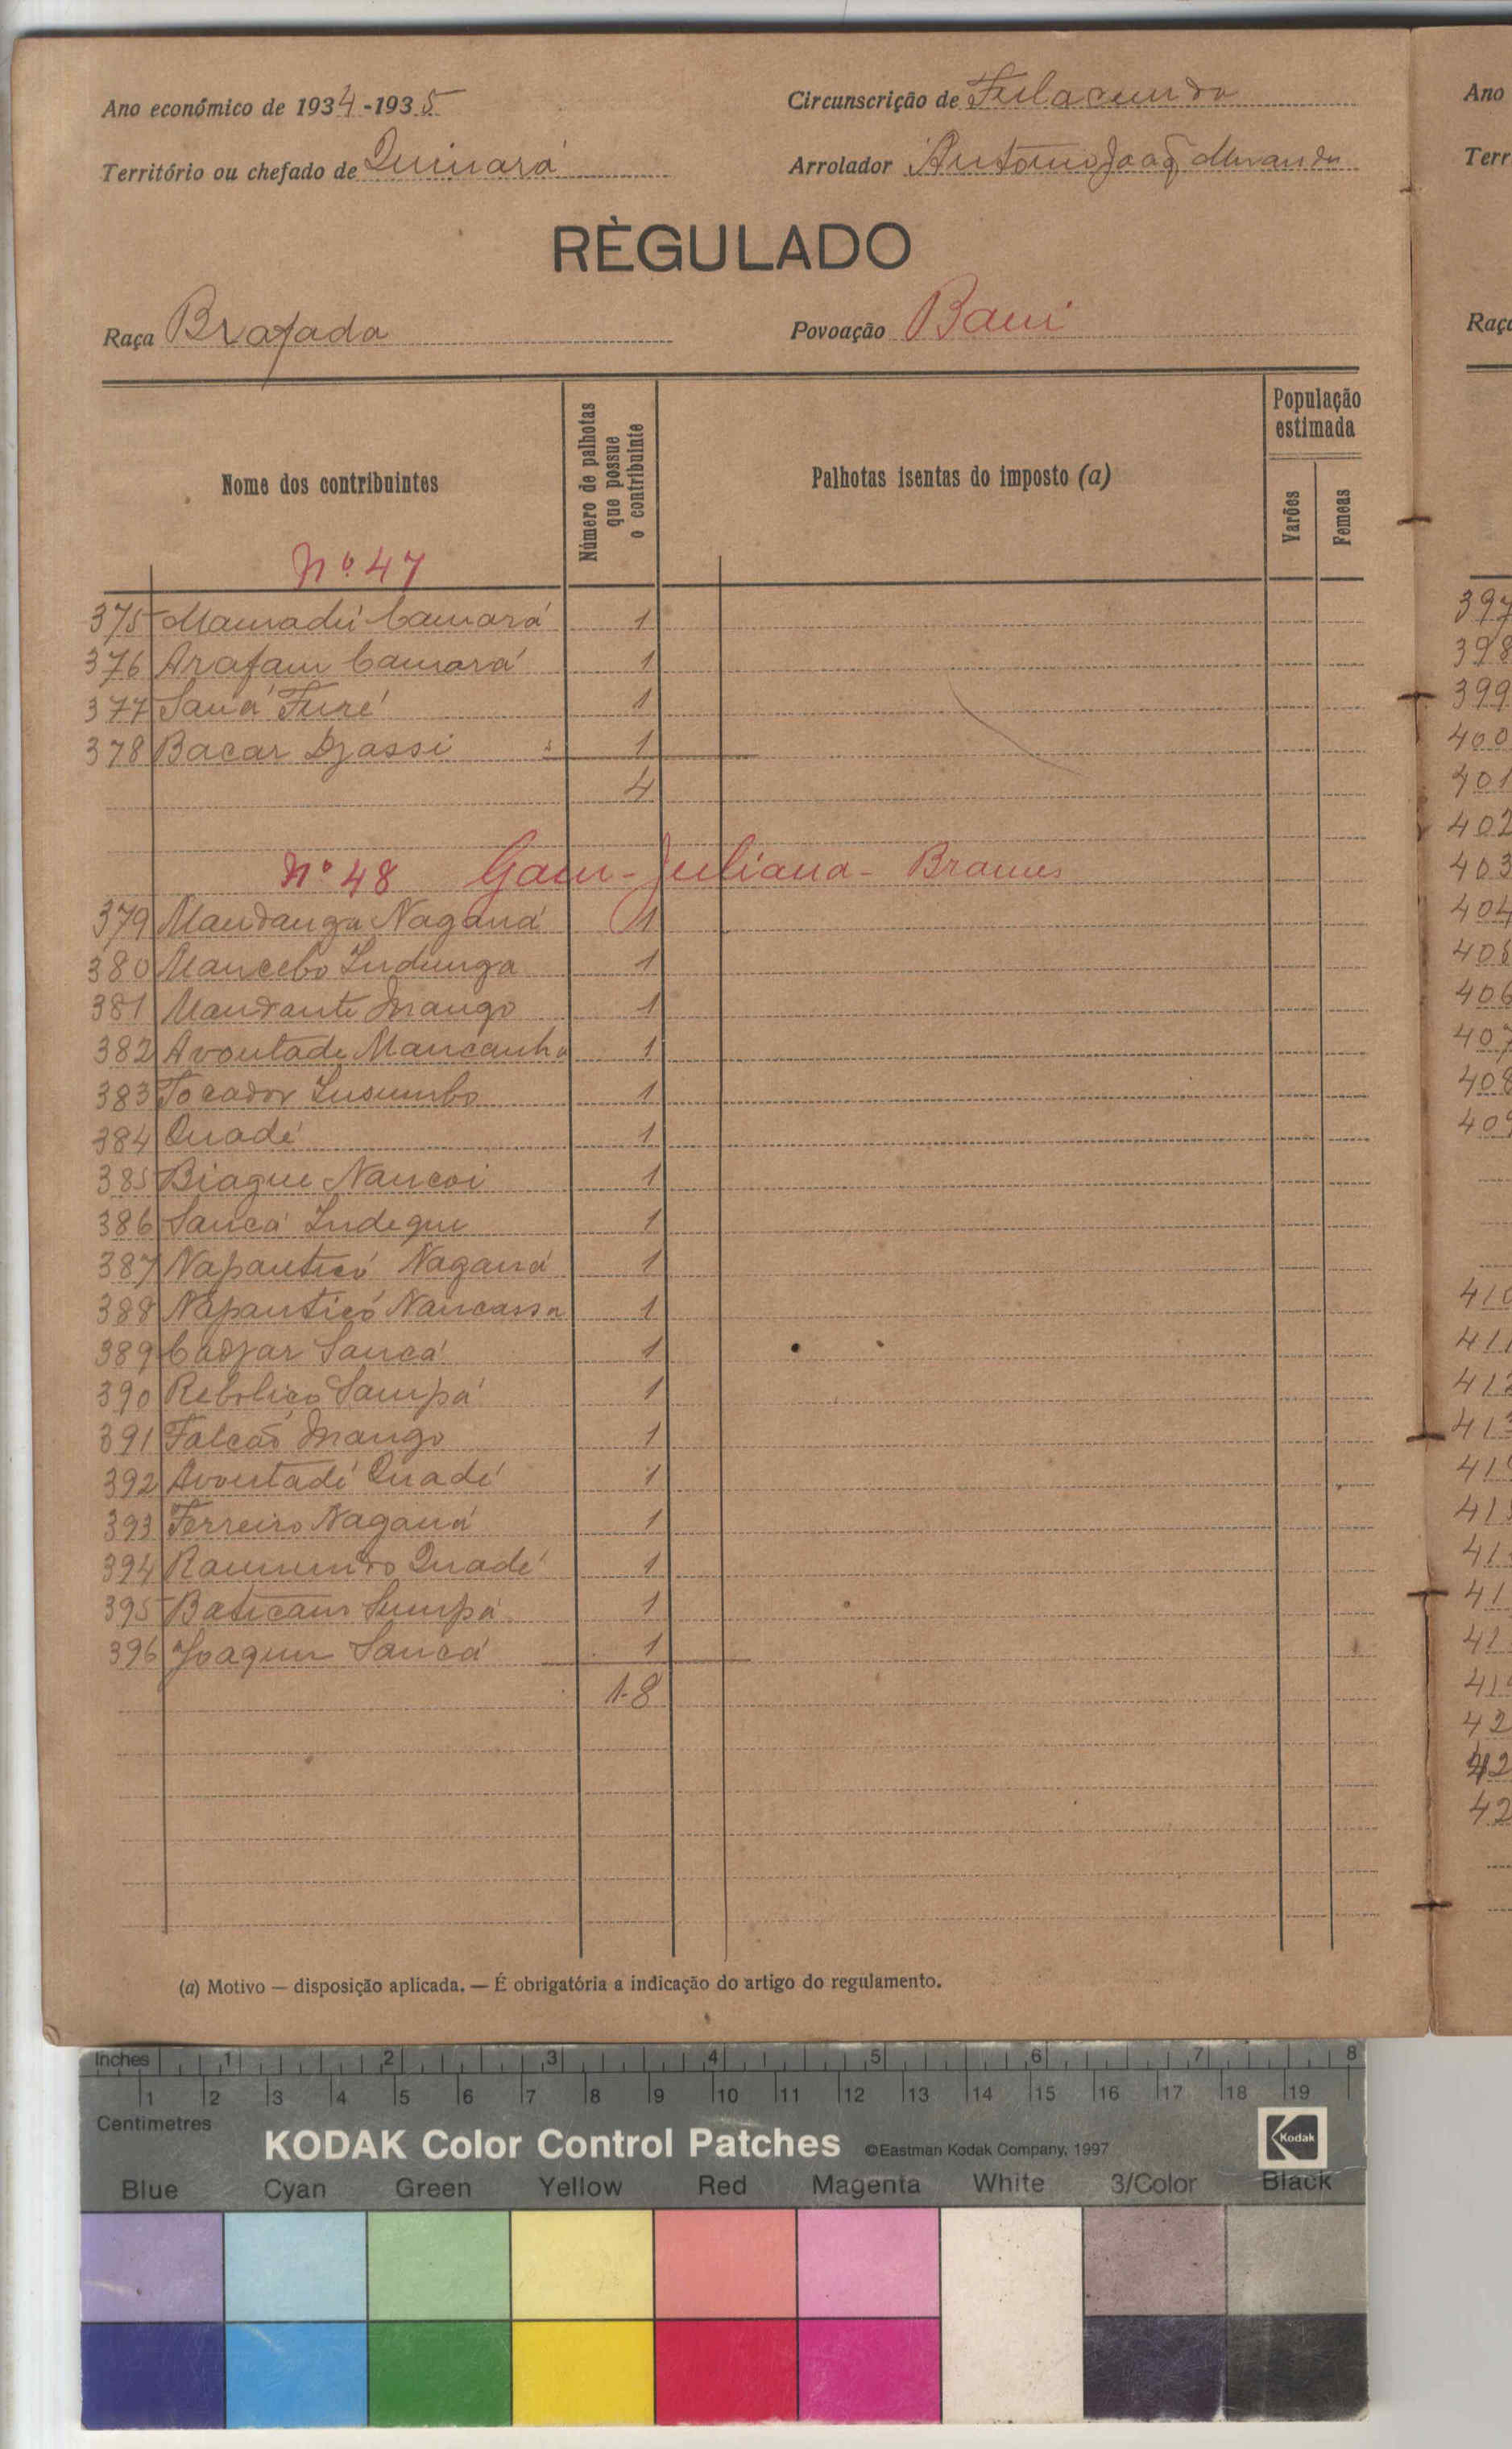 Ano económico de 1934-1935
Circunscrição de Fulacunda
Território ou chefado de Quinará
Arrolador António João Miranda
RÈGULADO
Raça Brafada
Povoação Bani
Nome dos contribuintes
Número de palhotas que possue o contribuinte
Palhotas isentas do imposto (a)
População estimada
Varões
Femeas
Nº 47
375 Mamadú Camará 1
376 Arafam Camará 1
377 Saná Turé 1
378 Bacar Djassi 1
4
Nº 48 Gam-Juliana - Brames
379 Mandanga Nagana 1
380 Mancebo Indunga 1
381 Mandante Mango 1
382 Avoutade Mancanha 1
383 Tocador Insumbo 1
384 Quadé 1
385 Biague Nancoi 1
386 Sancá Indeque 1
387 Napanticó Naganá 1
388 Napanticó Nancassa 1
389 Cadjar Sancá 1
390 Reboliço Sampá 1
391 Falcão Mango 1
392 Avoutadé Quadé 1
393 Ferreiro Naganá 1
394 Raimundo Quadé 1
395 Baticam Sumpá 1
396 Joaquim Sancá 1
18
(a) Motivo — disposição aplicada. — É obrigatória a indicação do artigo do regulamento.
Ano
Terr
Raça
397
398
399
400
401
402
403
404
405
406
407
408
409
410
411
412
413
Inches 1 2 3 4 5 6 7 8
1 2 3 4 5 6 7 8 9 10 11 12 13 14 15 16 17 18 19
Centimetres
KODAK Color Control Patches ©Eastman Kodak Company, 1997 Kodak
Blue Cyan Green Yellow Red Magenta White 3/Color Black